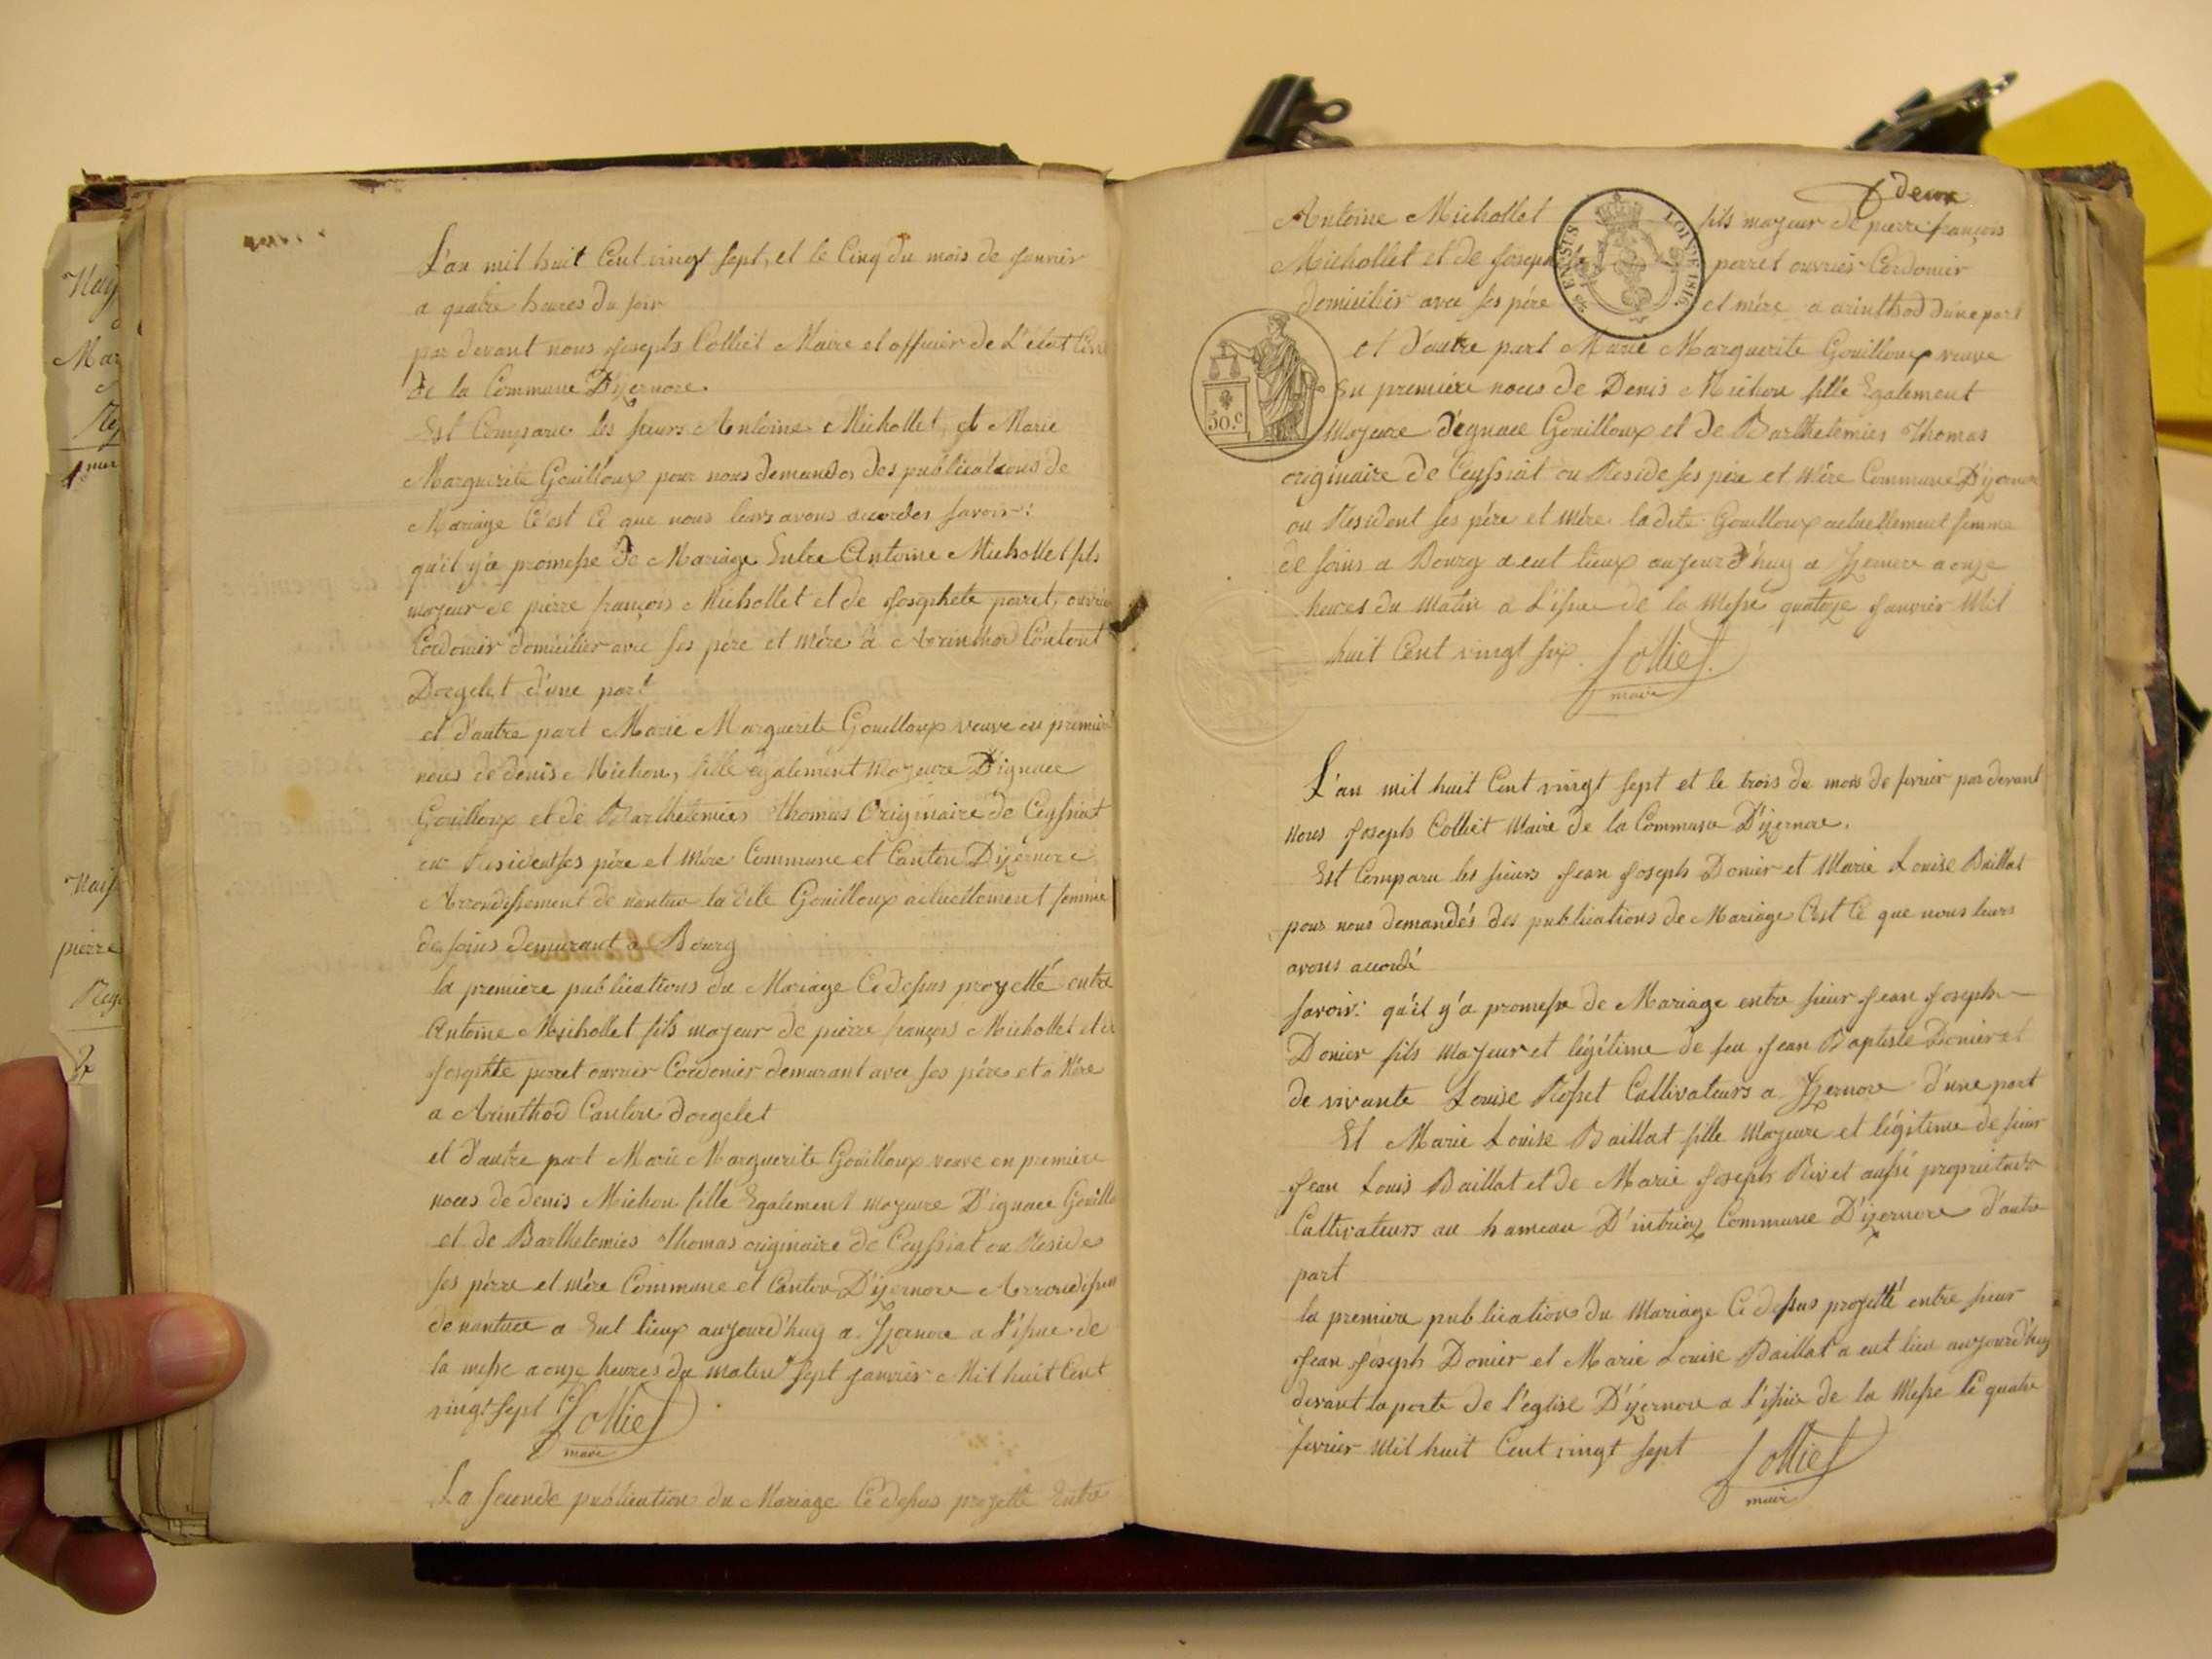 L'an mil huit Cent vingt sept, et le Cinq du mois de Janvier
a quatre heures du soir
par devant nous Joseph Colliet Maire et officier de L'état Civil
de la Commune D'izernore
Est Comparue les sieurs Antoine Michollet, et Marie
Marguerite Gouilloux pour nous demander des publications de
Mariage C'est Ce que nous leurs avons accorder savoir:
qu'il y'a promesse de Mariage Entre Antoine Michollet fils
majeur de pierre françois Michollet et de Josephete perret, ouvrier
Cordonier domicilier avec ses père et mère a Arinthod Canton
Dorgelet d'une part
et d'autre part Marie Marguerite Gouilloux veuve en première
noces de denis Michon, fille également Majeure D'ignace
Gouilloux et de Barthelemies Thomas Originaire de Ceyssiat
ou Resident ses père et Mère Commune et Canton D'izernore
Arrondissement de nantua la dite Gouilloux actuellement femme
de soins demurant a Bourg
la premiere publications du Mariage Ci dessus proyetté entre
Antoine Michollet fils majeur de pierre françois Michollet et de
Josephte perret ouvrier Cordonier demurant avec ses père et Mère
a Arinthod Canton dorgelet
et d'autre part Marie Marguerite Gouilloux veuve en premiere
noces de denis Michon fille Egalement majeure D'ignace Gouillo
et de Barthelemies Thomas originaire de Ceyssiat ou Reside
ses pérre et mère Commune et Canton D'izernore Arrondissem
de nantua a Eut lieux aujourd'huy a Izernore a l'issue de
la messe a onze heures du matin sept Janvier Mil huit Cent
vingt sept Colliet
maire
La seconde publication du Mariage Ci dessus projetté Entre
deux
Antoine Michollet fils majeur de pierre françois
Michollet et de Joseph perret ouvrier Cordonier
domicilier avec ses père et mère a arinthod d'une part
et d'autre part Marie Marguerite Gouilloux veuve
En premiere noces de Denis Michon fille Egalement
Majeure d'égnace Gouilloux et de Barthelemies Thomas
originaire de Ceyssiat ou Reside ses père et Mère Commune D'izernore
ou Resident ses père et Mère ladite Gouilloux actuellement femme
de soins a Bourg a eut lieux aujourd'huy a Izernore a onze
heures du Matin a L'issue de la Messe quatoze Janvier Mil
huit Cent vingt six. Colliet
maire
LOI DE 1816
50.c
L'an mil huit Cent vingt sept et le trois du mois de fevrier par devant
nous Joseph Colliet Maire de la Commune D'izernore.
Est Comparu les sieurs Jean Joseph Donier et Marie Louise Baillat
pour nous demandés des publications de Mariage C'est Ce que nous leurs
avons accordé
savoir: qu'il y'a promesse de Mariage entre sieur Jean Joseph
Donier fils Majeur et légitime de feu Jean Baptiste Donier et
de vivante Louise Rosset Cultivateurs a Izernore d'une part
Et Marie Louise Baillat fille Majeure et légitime de sieur
Jean Louis Baillat et de Marie Joseph Rivet aussi proprietaire
Cultivateurs au hameau D'intriaz Commune D'izernore d'autre
part
la premiere publication du Mariage Ci dessus projetté entre sieur
Jean Joseph Donier et Marie Louise Baillat a eut lieu aujourd'huy
devant la porte de l'église D'izernore a l'issue de la Messe le quatre
fevrier Mil huit Cent vingt sept Colliet
maire
pierre